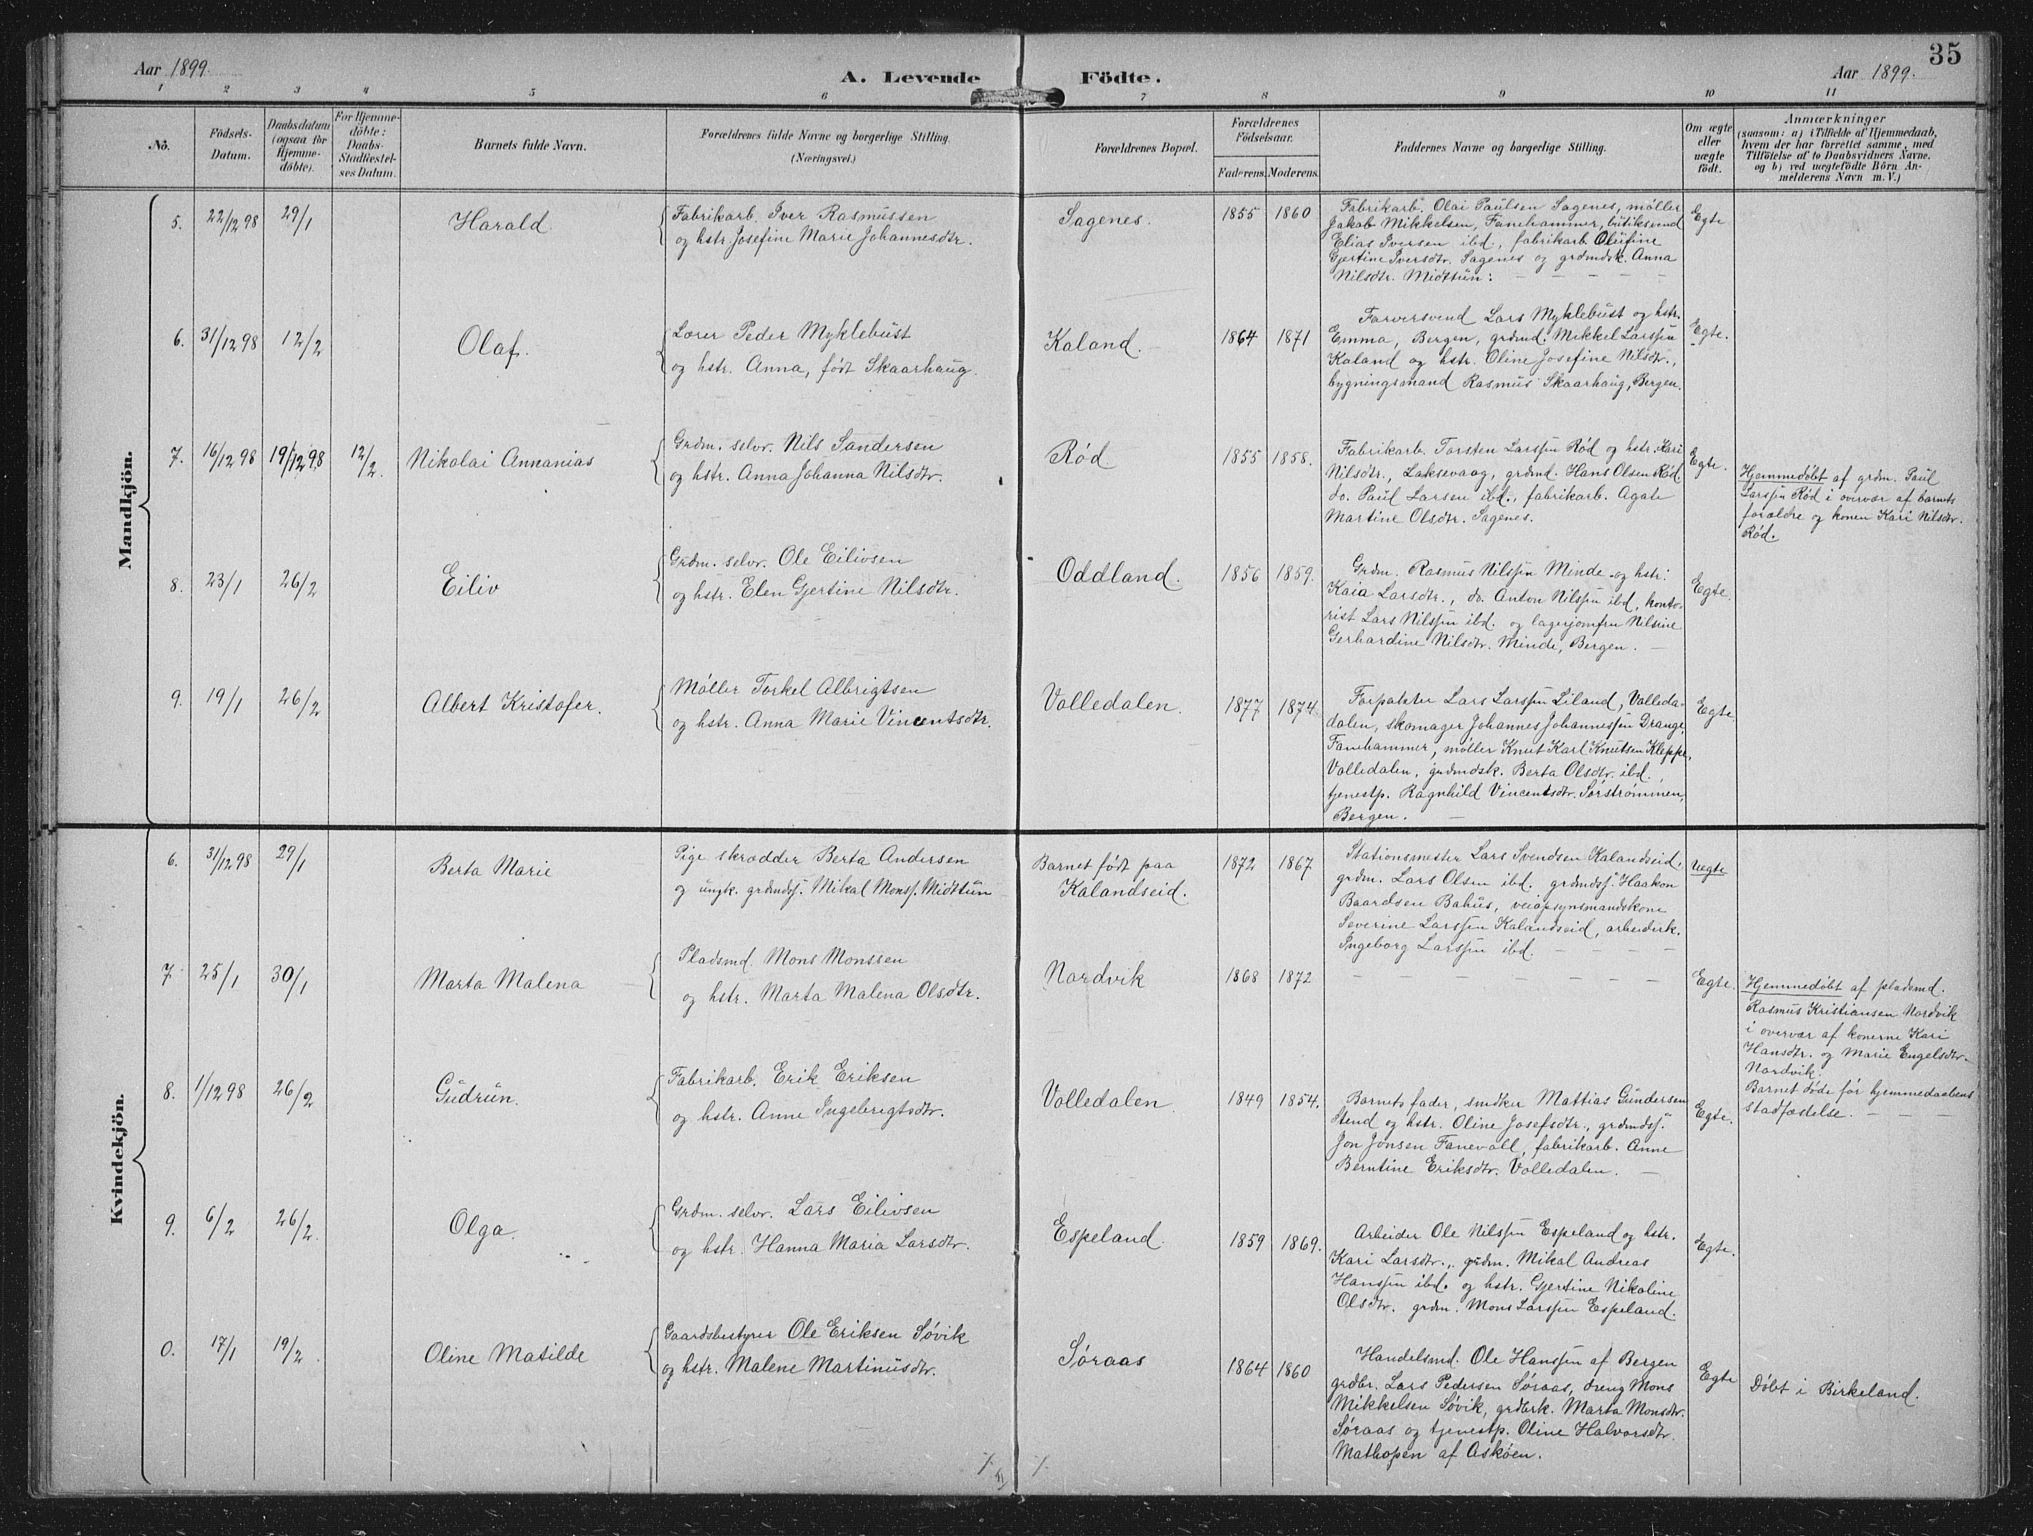 35
Aar 1899.
A. Levende Födte.
Aar 1899.
1 2 3 4 5 6 7 8 9 10 11
No.
Födsels-Datum.
Daabsdatum (ogsaa för Hjemme-döbte).
For Hjemme-döbte: Daabs-Stadfæstel-ses Datum.
Barnets fulde Navn.
Forældrenes fulde Navne og borgerlige Stilling. (Næringsvei.)
Forældrenes Bopæl.
Forældrenes Födselsaar.
Faderens. Moderens.
Faddernes Navne og borgerlige Stilling.
Om ægte eller uægte födt.
Anmærkninger
(saasom: a) i Tilfælde af Hjemmedaab,
hvem der har forrettet samme, med
Tilföielse af to Daabsvidners Navne,
og b) ved uægtefödte Börn An-
melderens Navn m. V.)
Mandkjön.
5. 22/12 98 29/1 Harald
Fabrikarb. Iver Rasmussen
og hstr. Josefine Marie Johannesdtr.
Sagenes. 1855 1860
Fabrikarb. Olai Paulsen Sagenes, møller
Jakob Mikkelsen, Fanehammer, butiksvend
Elias Iversen ibd., fabrikarb. Olufine
Gjertine Iversdtr. Sagenes og grdmdsk. Anna
Nilsdtr. Midttun:
Egte
6. 31/12 98 12/2 Olaf.
Lærer Peder Myklebust
og hstr. Anna, født Skaarhaug.
Kaland. 1864 1871
Farversvend Lars Myklebust og hstr.
Emma, Bergen, grdmd. Mikkel Larssen
Kaland og hstr. Oline Josefine Nilsdtr.,
bygningsmand Rasmus Skaarhaug, Bergen.
Egte.
7. 16/12 98 19/12 98 12/2. Nikolai Annanias
Grdm. selv. Nils Sandersen
og hstr. Anna Johanna Nilsdtr.
Rød. 1855 1858.
Fabrikarb. Torsten Larssen Rød og hstr. Kari
Nilsdtr., Laksevaag, grdmd. Hans Olsen Rød.
do. Paul Larsen ibd., fabrikarb. Agate
Martine Olsdtr. Sagenes.
Egte.
Hjemmedøbt af grdm. Paul
Larssen Rød i overvær af barnets
forældre og konen Kari Nilsdtr.
Rød.
8. 23/1 26/2 Eiliv
Grdm. selv. Ole Eilivsen
og hstr. Elen Gjertine Nilsdtr.
Oddland. 1856 1859.
Grdm. Rasmus Nilssen Minde og hstr.
Kaia Larsdtr., do. Anton Nilssen ibd, konto-
rist Lars Nilssen ibd. og lagerjomfru Nilsine
Gerhardine Nilsdtr. Minde, Bergen.
Egte.
9. 19/1 26/2 Albert Kristofer.
Møller Torkel Albrigtsen
og hstr. Anna Marie Vincentsdtr.
Volledalen. 1877 1874.
Forpakter Lars Larssen Liland, Volleda-
dalen, skomager Johannes Johannessen Drange,
Fanehammer, møller Knut Karl Knutsen Kleppe,
Volledalen, grdmdsk. Berta Olsdtr. ibd.,
tjenestp. Ragnhild Vincentsdtr. Sørstrømmen,
Bergen.
Egte.
Kvindekjön.
6. 31/12 98 29/1 Berta Marie
Pige skrædder Berta Andersen
og ungk. grdmdss. Mikal Monss. Midttun
Barnet født paa
Kalandseid.
1872 1867
Stationsmester Lars Svendsen Kalandseid,
grdm. Lars Olsen ibd. grdmdss. Haakon
Baardsen Bahus, veiopsynsmandskone
Severine Larssen Kalandseid, arbeiderk.
Ingeborg Larssen ibd.
Uegte
7 25/1 30/1 Marta Malena
Pladsmd. Mons Monssen
og hstr. Marta Malena Olsdtr.
Nordvik 1868 1872
Egte.
Hjemmedøbt af pladsmd.
Rasmus Kristiansen Nordvik
i overvær af konerne Kari
Hansdtr. og Marie Engelsdtr.
Nordvik.
Barnet døde før hjemmedaabens
stadfæstelse.
8. 1/12 98 26/2 Gudrun.
Fabrikarb. Erik Eriksen
og hstr. Anne Ingebrigtsdtr.
Volledalen. 1849 1854.
Barnets fader, smdker Mattias Gundersen
Stend og hstr. Oline Josefsdtr., grdmdss.
Jon Jonsen Fanevoll, fabrikarb. Anne
Berntine Eriksdtr. Volledalen.
Egte.
9. 6/2 26/2. Olga.
Grdm. selv. Lars Eilivsen
og hstr. Hanna Maria Larsdtr.
Espeland. 1859 1869.
Arbeider Ole Nilssen Espeland og hstr.
Kari Larsdtr., grdm. Mikal Andreas
Hanssen ibd. og hstr. Gjertine Nikoline
Olsdtr. grdm. Mons Larssen Espeland.
Egte.
0. 17/1 19/2. Oline Matilde
Gaardsbestyrer Ole Eriksen Søvik
og hstr. Malene Martinusdtr.
Søraas 1864 1860
Handelsmd. Ole Hanssen af Bergen
grdbr. Lars Pedersen Søraas, dreng Mons
Mikkelsen Søvik, grdbrk. Marta Monsdtr.
Søraas og tjenestp. Oline Halvorsdtr.
Mathopen af Askøen.
Egte
Døbt i Birkeland.